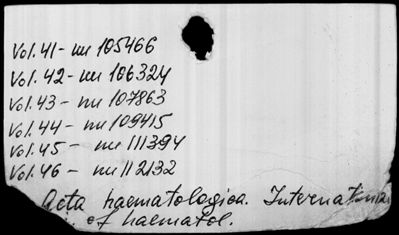 Vol. 41 - nu 105466
Vol. 42 - nu 106324
Vol. 43 - nu 107863
Vol. 44 - nu 109415
Vol. 45 - nu 111394
Vol. 46 - nu 112132
Acta haematologica. Internationa
of haematol.